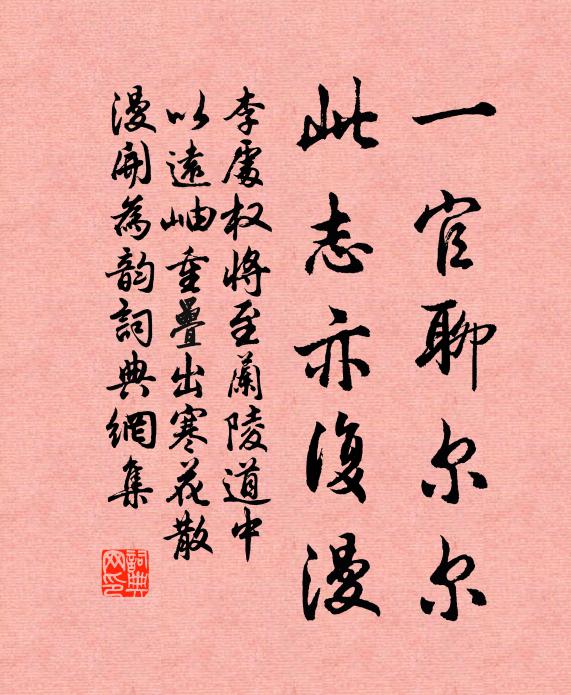 一官聊尔尔
此志亦復漫
李處权將至蘭陵道中
以遠岫重疊出寒花散
漫開為韵詞典網集
詞典网印